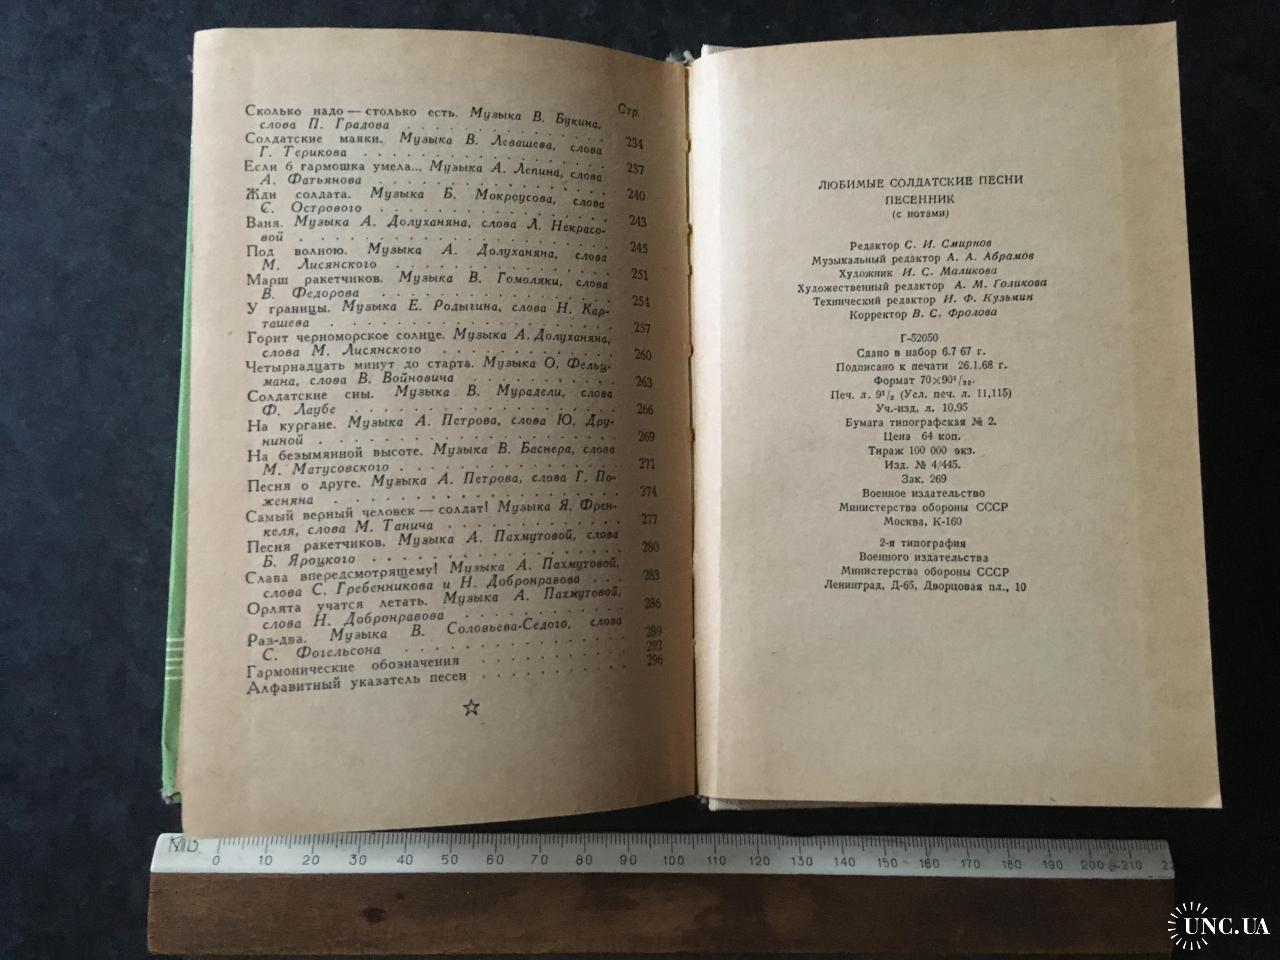 Стр.
Сколько надо — столько есть. Музыка В. Букина,
слова П. Градова . . . . . . . . . . . 234
Солдатские маяки. Музыка В. Левашева, слова
Г. Терикова . . . . . . . . . . . . . 237
Если б гармошка умела... Музыка А. Лепина, слова
А. Фатьянова . . . . . . . . . . . . 240
Жди солдата. Музыка Б. Мокроусова, слова
С. Острового . . . . . . . . . . . . 243
Ваня. Музыка А. Долуханяна, слова Л. Некрасо-
вой . . . . . . . . . . . . . . . . 245
Под волною. Музыка А. Долуханяна, слова
М. Лисянского . . . . . . . . . . . . 251
Марш ракетчиков. Музыка В. Гомоляки, слова
В. Федорова . . . . . . . . . . . . . 254
У границы. Музыка Е. Родыгина, слова Н. Кар-
ташева . . . . . . . . . . . . . . . 257
Горит черноморское солнце. Музыка А. Долуханяна,
слова М. Лисянского . . . . . . . . . 260
Четырнадцать минут до старта. Музыка О. Фельц-
мана, слова В. Войновича . . . . . . . 263
Солдатские сны. Музыка В. Мурадели, слова
Ф. Лаубе . . . . . . . . . . . . . . 266
На кургане. Музыка А. Петрова, слова Ю. Дру-
ниной . . . . . . . . . . . . . . . 269
На безымянной высоте. Музыка В. Баснера, слова
М. Матусовского . . . . . . . . . . . 271
Песня о друге. Музыка А. Петрова, слова Г. По-
женяна . . . . . . . . . . . . . . . 274
Самый верный человек — солдат! Музыка Я. Френ-
келя, слова М. Танича . . . . . . . . 277
Песня ракетчиков. Музыка А. Пахмутовой, слова
Б. Яроцкого . . . . . . . . . . . . . 280
Слава впередсмотрящему! Музыка А. Пахмутовой,
слова С. Гребенникова и Н. Добронравова . . . 283
Орлята учатся летать. Музыка А. Пахмутовой,
слова Н. Добронравова . . . . . . . . 286
Раз-два. Музыка В. Соловьева-Седого, слова
С. Фогельсона . . . . . . . . . . . . 289
Гармонические обозначения . . . . . . . . 292
Алфавитный указатель песен . . . . . . . . 296
ЛЮБИМЫЕ СОЛДАТСКИЕ ПЕСНИ
ПЕСЕННИК
(с нотами)
Редактор С. И. Смирнов
Музыкальный редактор А. А. Абрамов
Художник И. С. Маликова
Художественный редактор А. М. Голикова
Технический редактор И. Ф. Кузьмин
Корректор В. С. Фролова
Г-52050
Сдано в набор 6.7 67 г.
Подписано к печати 26.1.68 г.
Формат 70×90¹/₃₂.
Печ. л. 9¹/₂ (Усл. печ. л. 11,115)
Уч.-изд. л. 10,95
Бумага типографская № 2.
Цена 64 коп.
Тираж 100 000 экз.
Изд. № 4/445.
Зак. 269
Военное издательство
Министерства обороны СССР
Москва, К-160
2-я типография
Военного издательства
Министерства обороны СССР
Ленинград, Д-65, Дворцовая пл., 10
0 10 20 30 40 50 60 70 80 90 100 110 120 130 140 150 160 170 180 190 200 210
UNC.UA